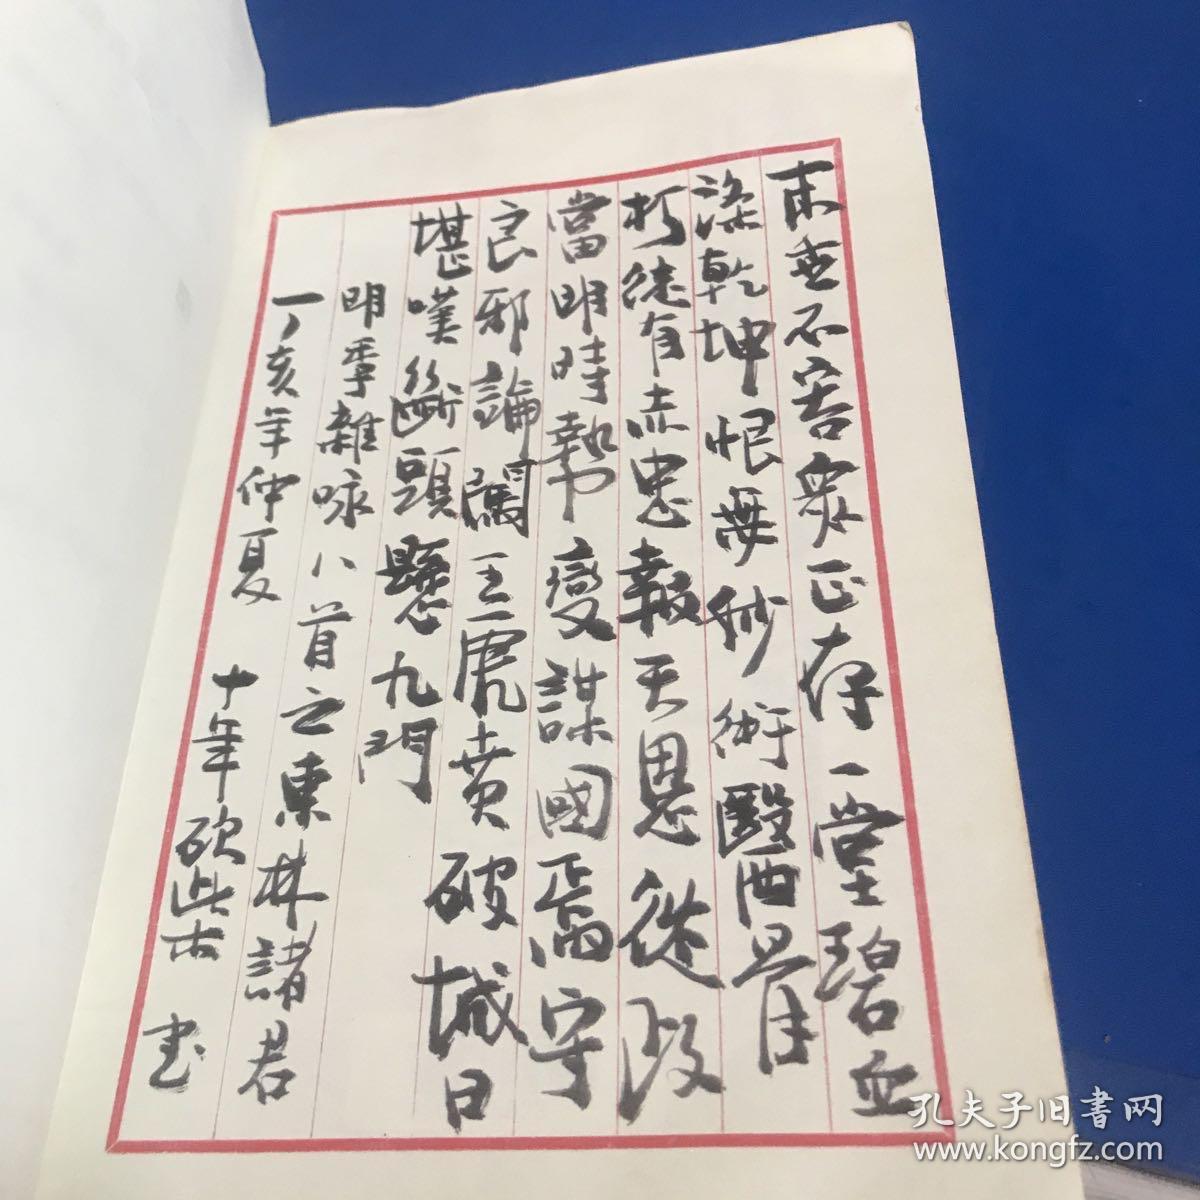 末世不容眾正存一堂碧血
染乾坤恨無妙術醫西骨
朽德有赤忠報天恩從政
當明時勢變謀國焉守
良邪論闖王虎賁破城日
堪嘆斷頭懸九門
明季雜咏八首之東林諸君
丁亥年仲夏 十年砍柴 書
孔夫子旧書网
www.kongfz.com